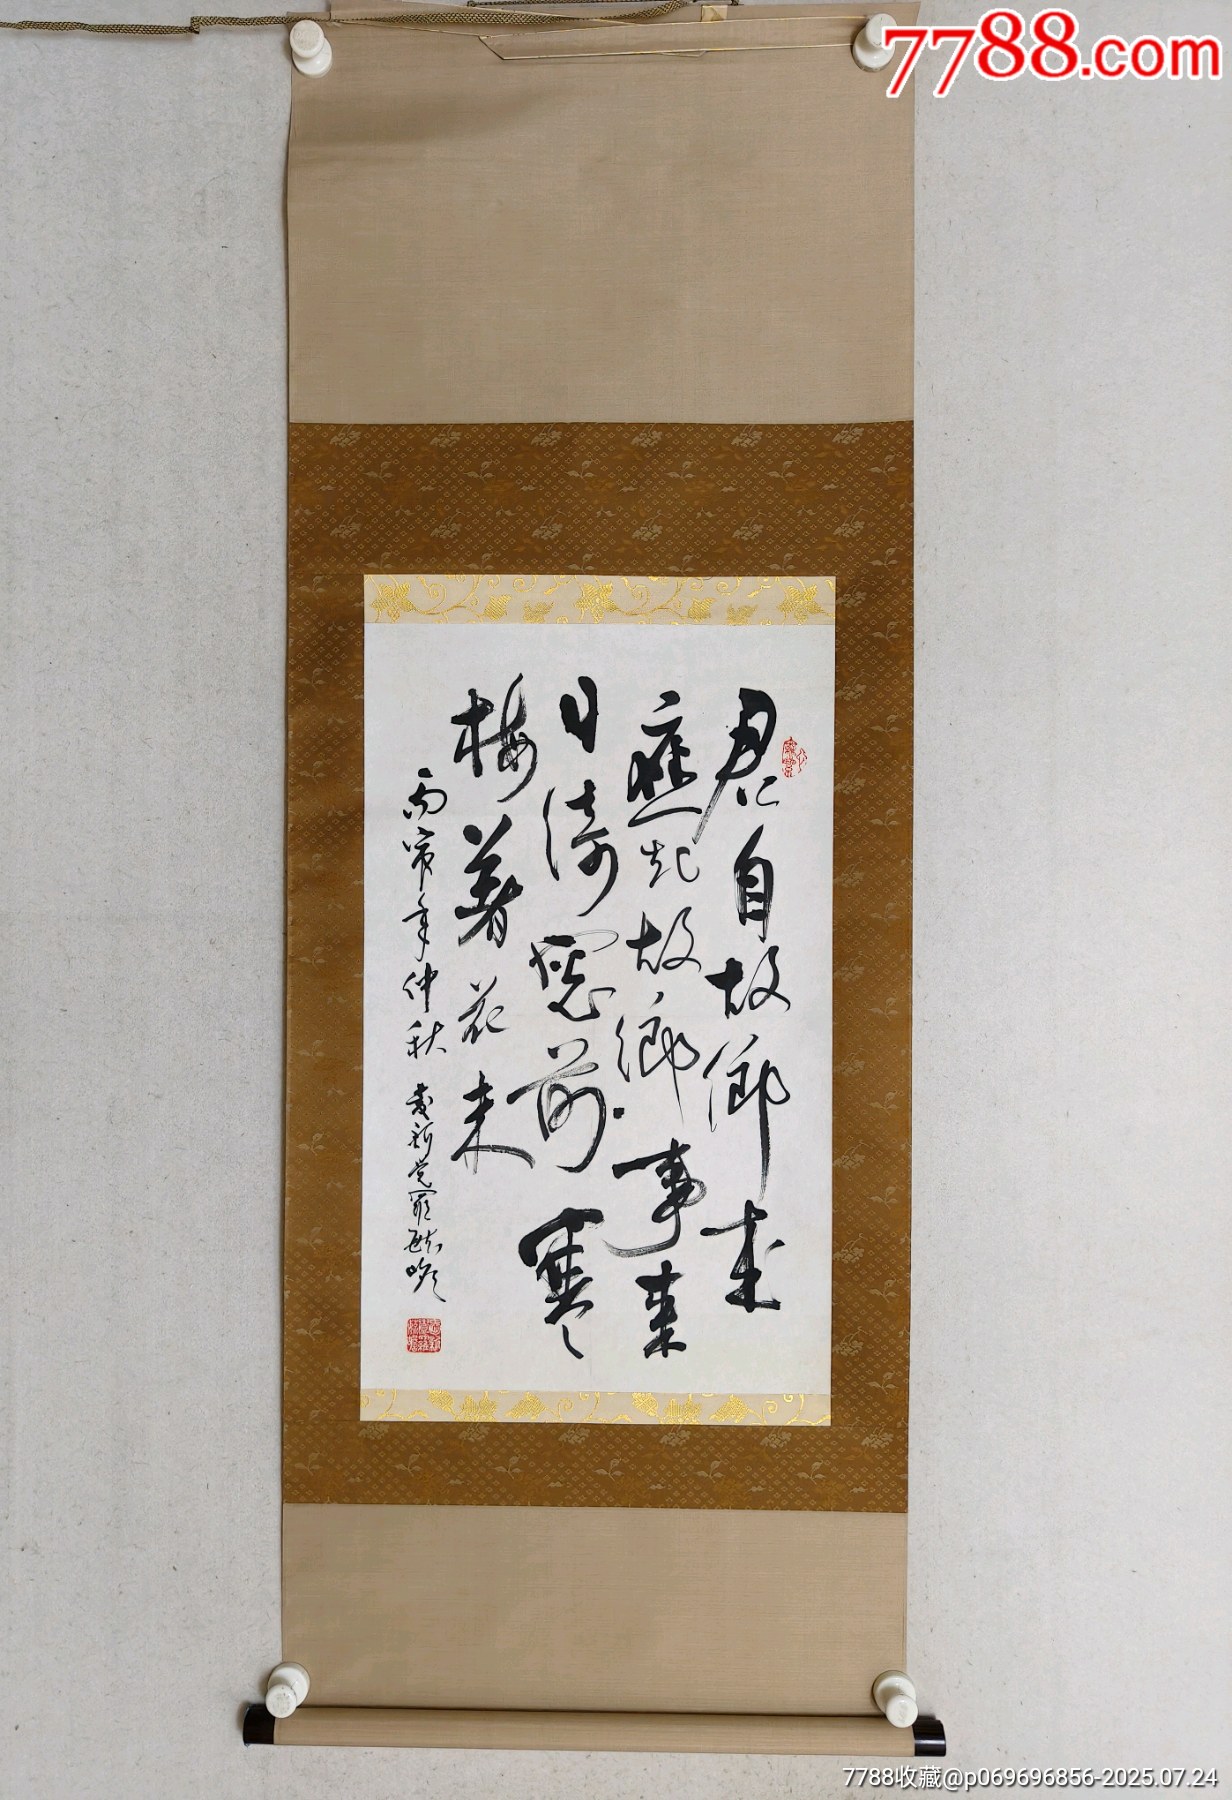 7788.com
君自故鄉来
應知故鄉事来
日綺窻前寒
梅著花未
丙寅年仲秋
7788收藏@p069696856-2025.07.24